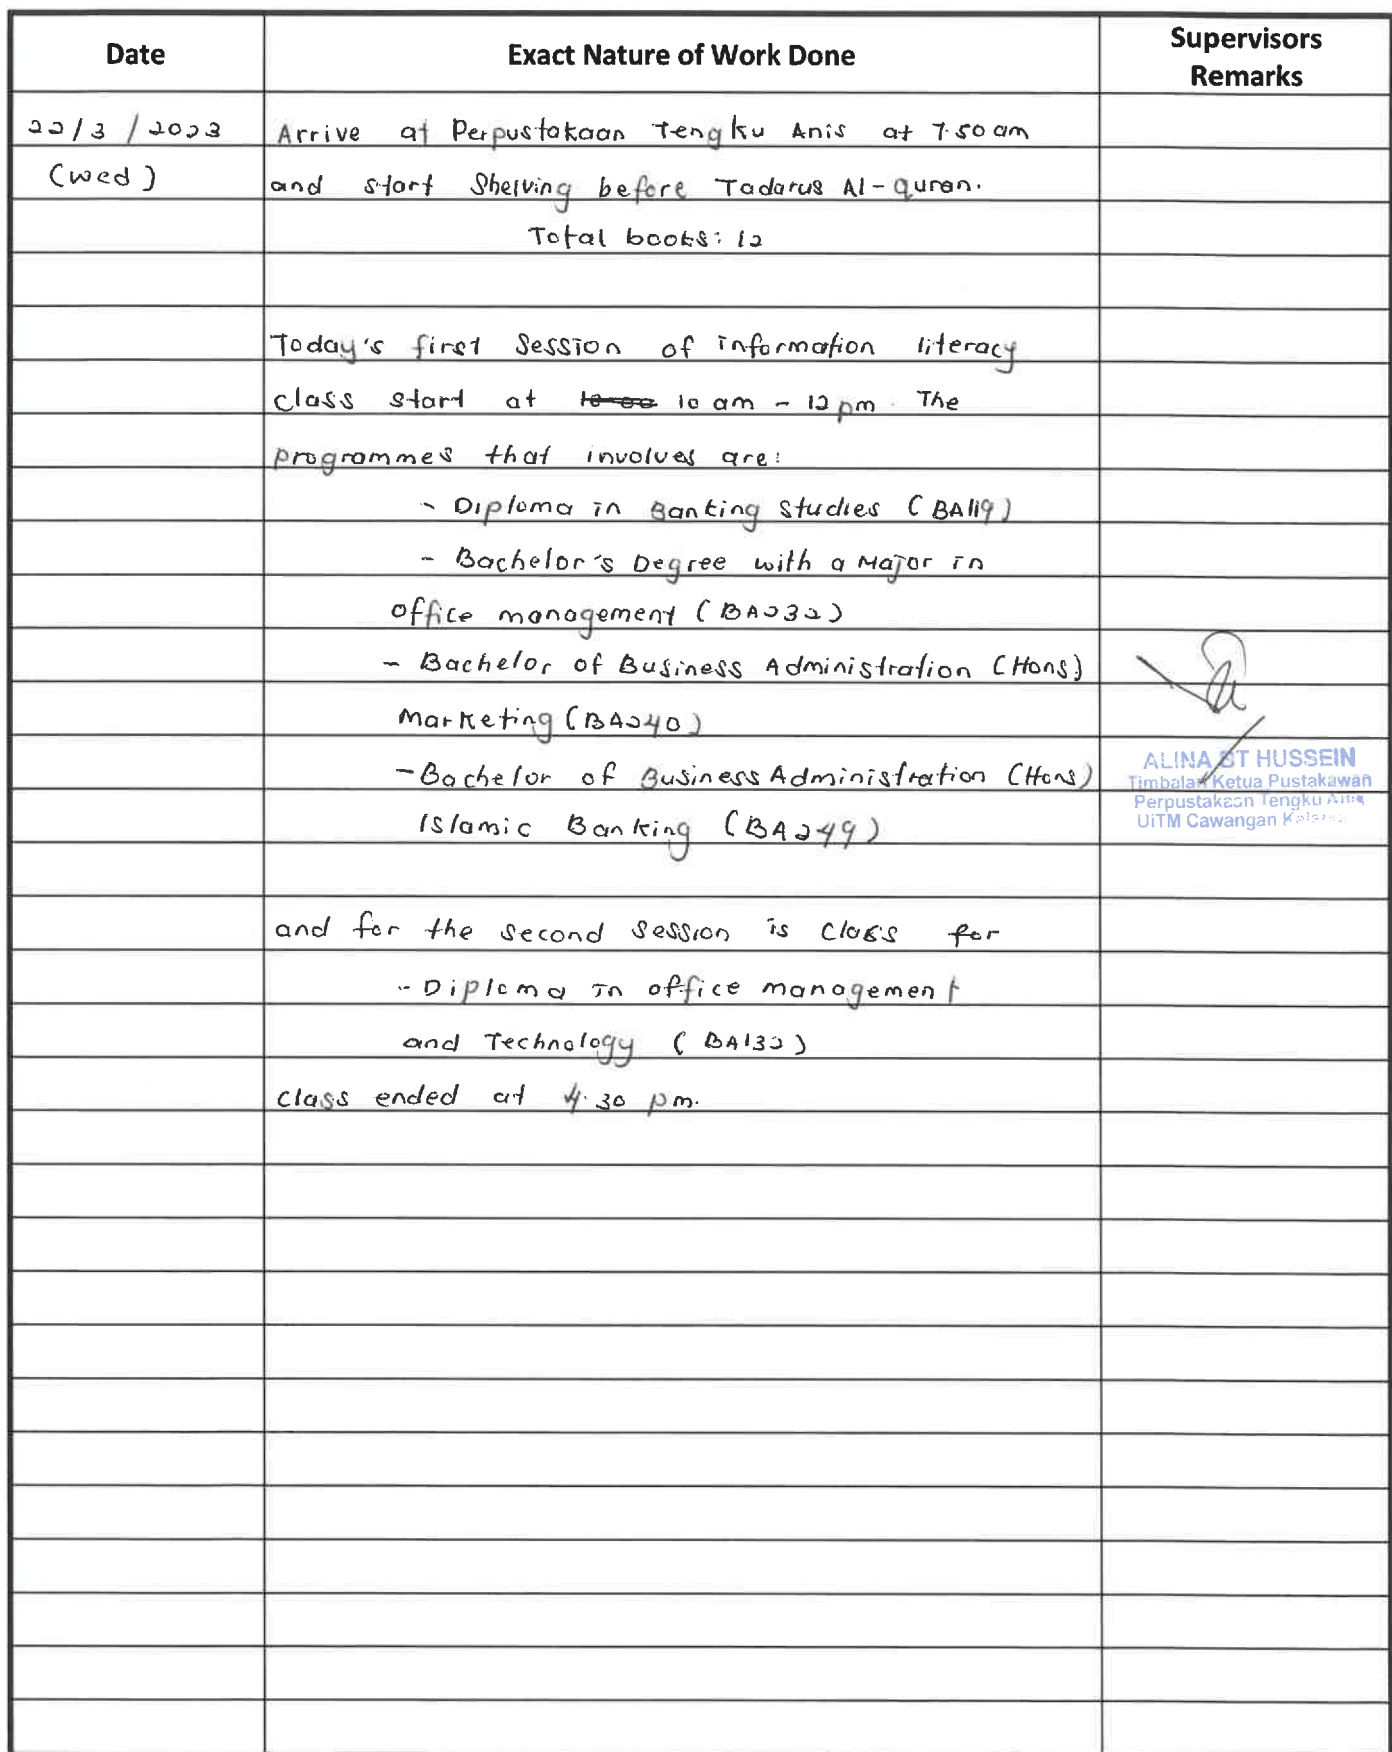 Date Exact Nature of Work Done Supervisors Remarks
22/3/2023 Arrive at Perpustakaan Tengku Anis at 7.50 am
(wed) and start Shelving before Tadarus Al-quran.
Total books: 12
Today's first Session of information literacy
class start at 10 am - 12 pm. The
programmes that involves are:
- Diploma in Banking Studies (BA119)
- Bachelor's Degree with a Major in
office management (BA232)
- Bachelor of Business Administration (Hons)
Marketing (BA240)
- Bachelor of Business Administration (Hons)
Islamic Banking (BA249)
ALINA BT HUSSEIN
Timbalan Ketua Pustakawan
Perpustakaan Tengku Anis
UiTM Cawangan
and for the second Session is Class for
- Diploma in office management
and Technology (BA132)
class ended at 4.30 pm.